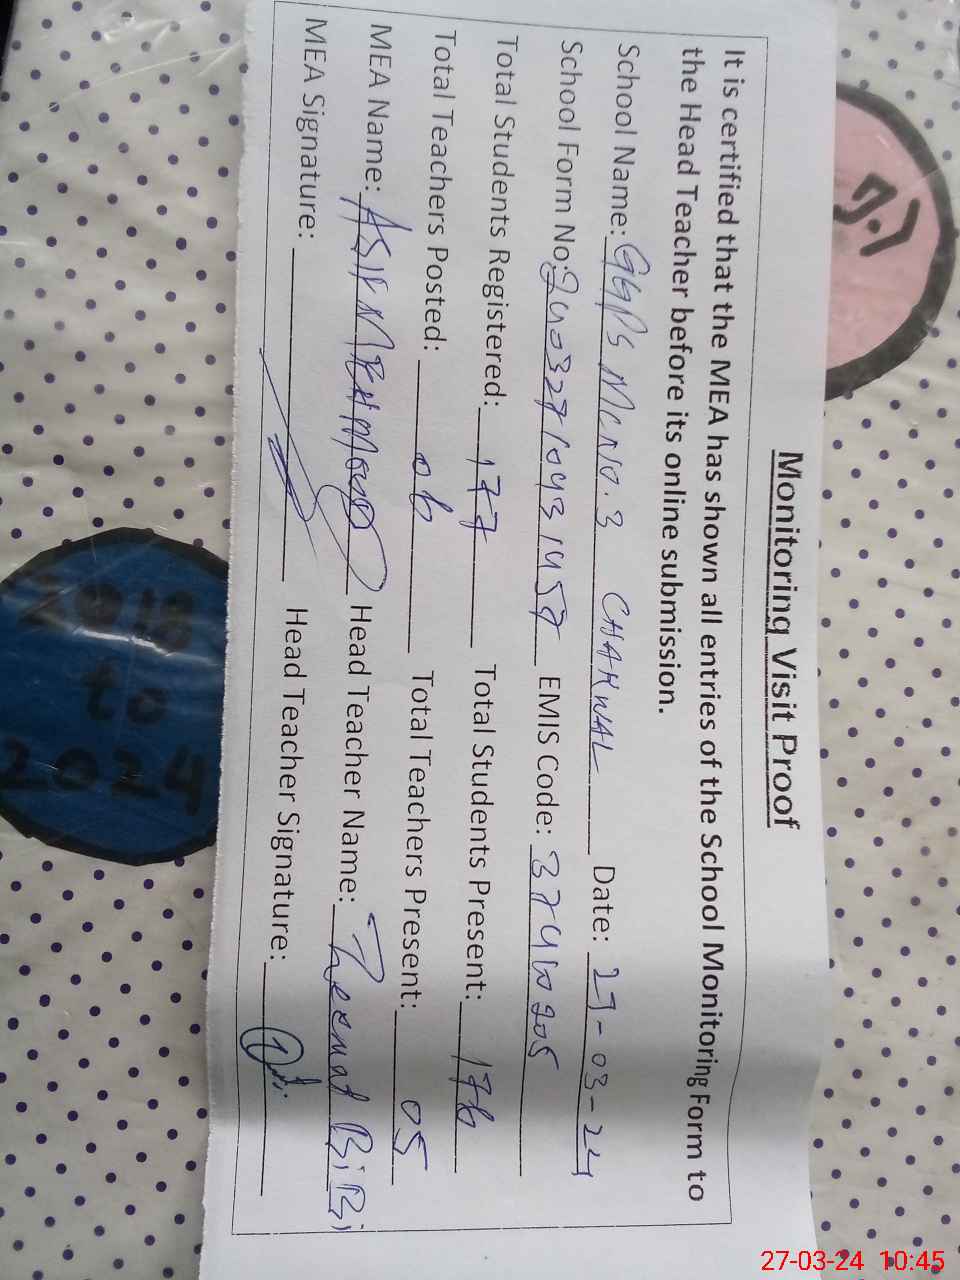 Monitoring Visit Proof
It is certified that the MEA has shown all entries of the School Monitoring Form to
the Head Teacher before its online submission.
School Name: GGPS MC NO. 3 CHAKWAL Date: 27-03-24
School Form No: EMIS Code:
Total Students Registered: 177 Total Students Present: 176
Total Teachers Posted: 06 Total Teachers Present: 05
MEA Name: ASIF MEHMOOD Head Teacher Name: Zeenat BiBi
MEA Signature: Head Teacher Signature:
2018
to
2024
27-03-24 10:45